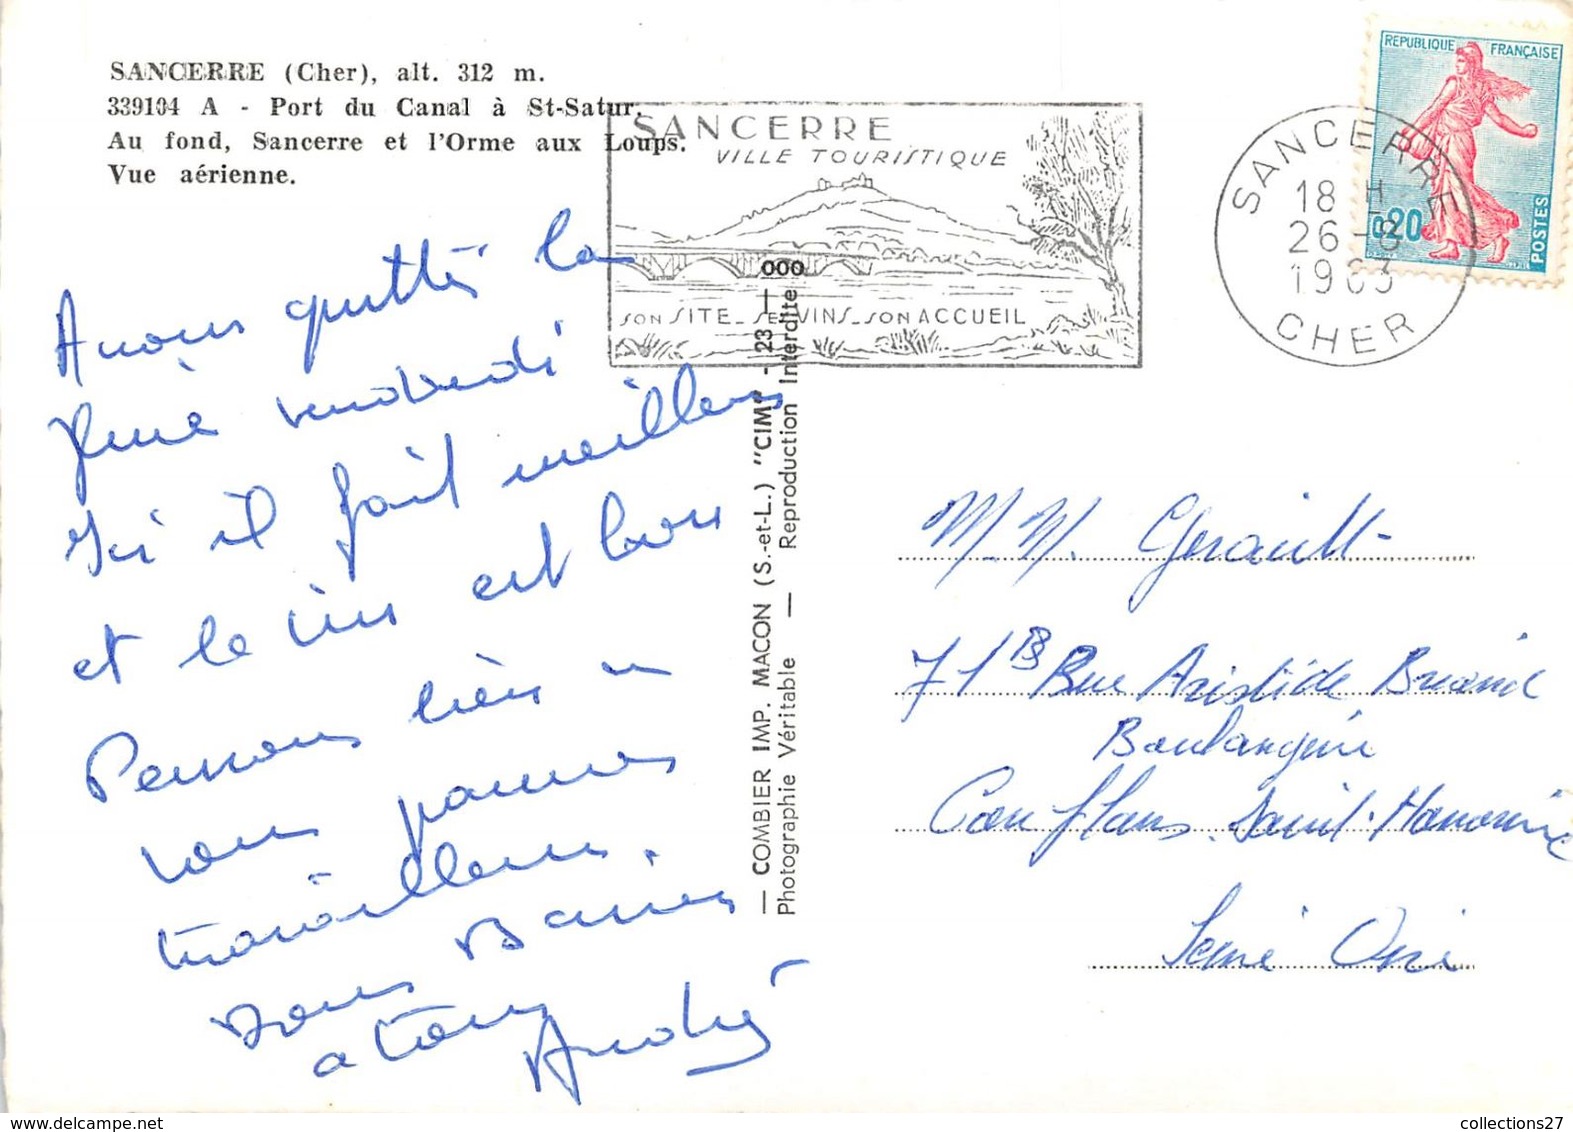 SANCERRE (Cher), alt. 312 m.
339104 A - Port du Canal à St-Satur.
Au fond, Sancerre et l'Orme aux Loups.
Vue aérienne.
SANCERRE
VILLE TOURISTIQUE
SON SITE_SES VINS_SON ACCUEIL
SANCERRE
18 H
26-8
1963
CHER
REPUBLIQUE FRANÇAISE
0,20
POSTES
Avons quitté la
pluie vendredi
Ici il fait meilleur
et le vin est bon
Pensons bien à
vous pauvres
travailleurs.
Bons Baisers
a tous
André
— COMBIER IMP. MACON (S.-et-L.) "CIM" - 23 — 000
Photographie Véritable — Reproduction Interdite
M. M. Gerault
71 B Rue Aristide Briand
Boulangerie
Conflans. Saint. Honorine
Seine Oise
collections27